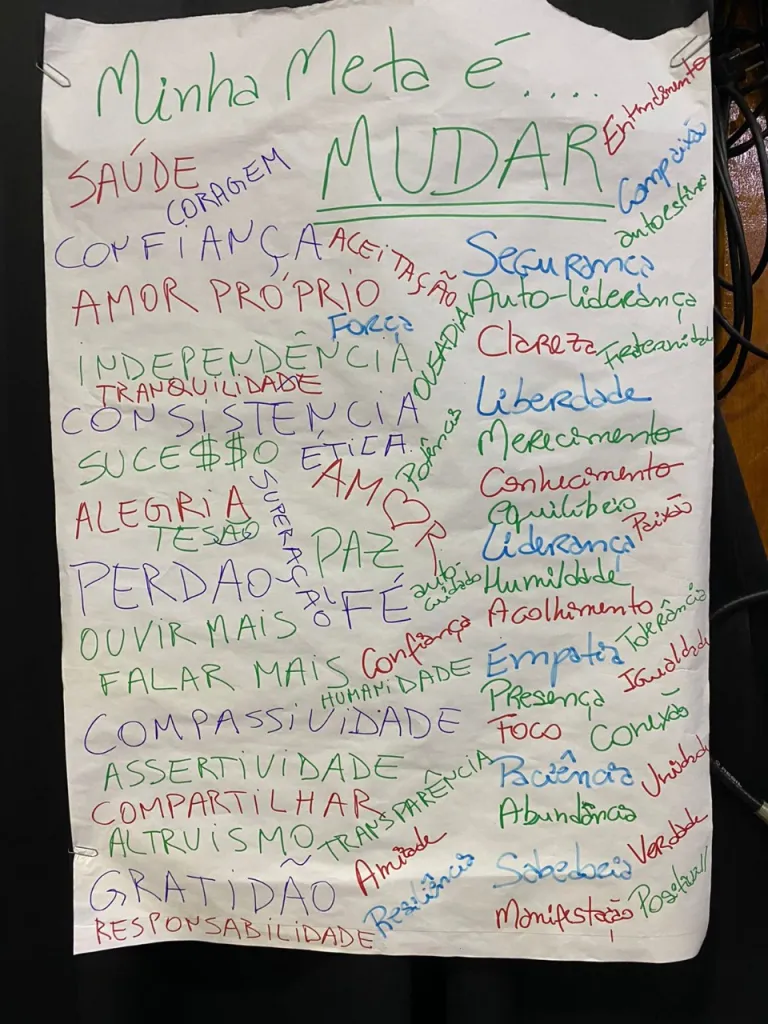 Minha Meta é....
MUDAR
Entendimento
Compaixão
autoestima
SAÚDE
CORAGEM
CONFIANÇA
ACEITAÇÃO
AMOR PRÓPRIO
FORÇA
INDEPENDÊNCIA
OUSADIA
TRANQUILIDADE
CONSISTENCIA
SUCE$$O
ÉTICA
Potência
AMOR
ALEGRIA
TESÃO
SUPERAÇÃO
PAZ
PERDÃO
FÉ
auto-
cuidado
OUVIR MAIS
FALAR MAIS
Confiança
HUMANIDADE
COMPASSIVIDADE
ASSERTIVIDADE
COMPARTILHAR
TRANSPARÊNCIA
ALTRUISMO
Amizade
GRATIDÃO
Resiliência
RESPONSABILIDADE
Segurança
Auto-liderança
Clareza
Fraternidade
Liberdade
Merecimento
Conhecimento
equilíbrio
Paixão
Liderança
Humildade
Acolhimento
Tolerância
Empatia
Igualdade
Presença
Foco
Conexão
Paciência
Unidade
Abundância
Verdade
Sabedoria
Manifestação